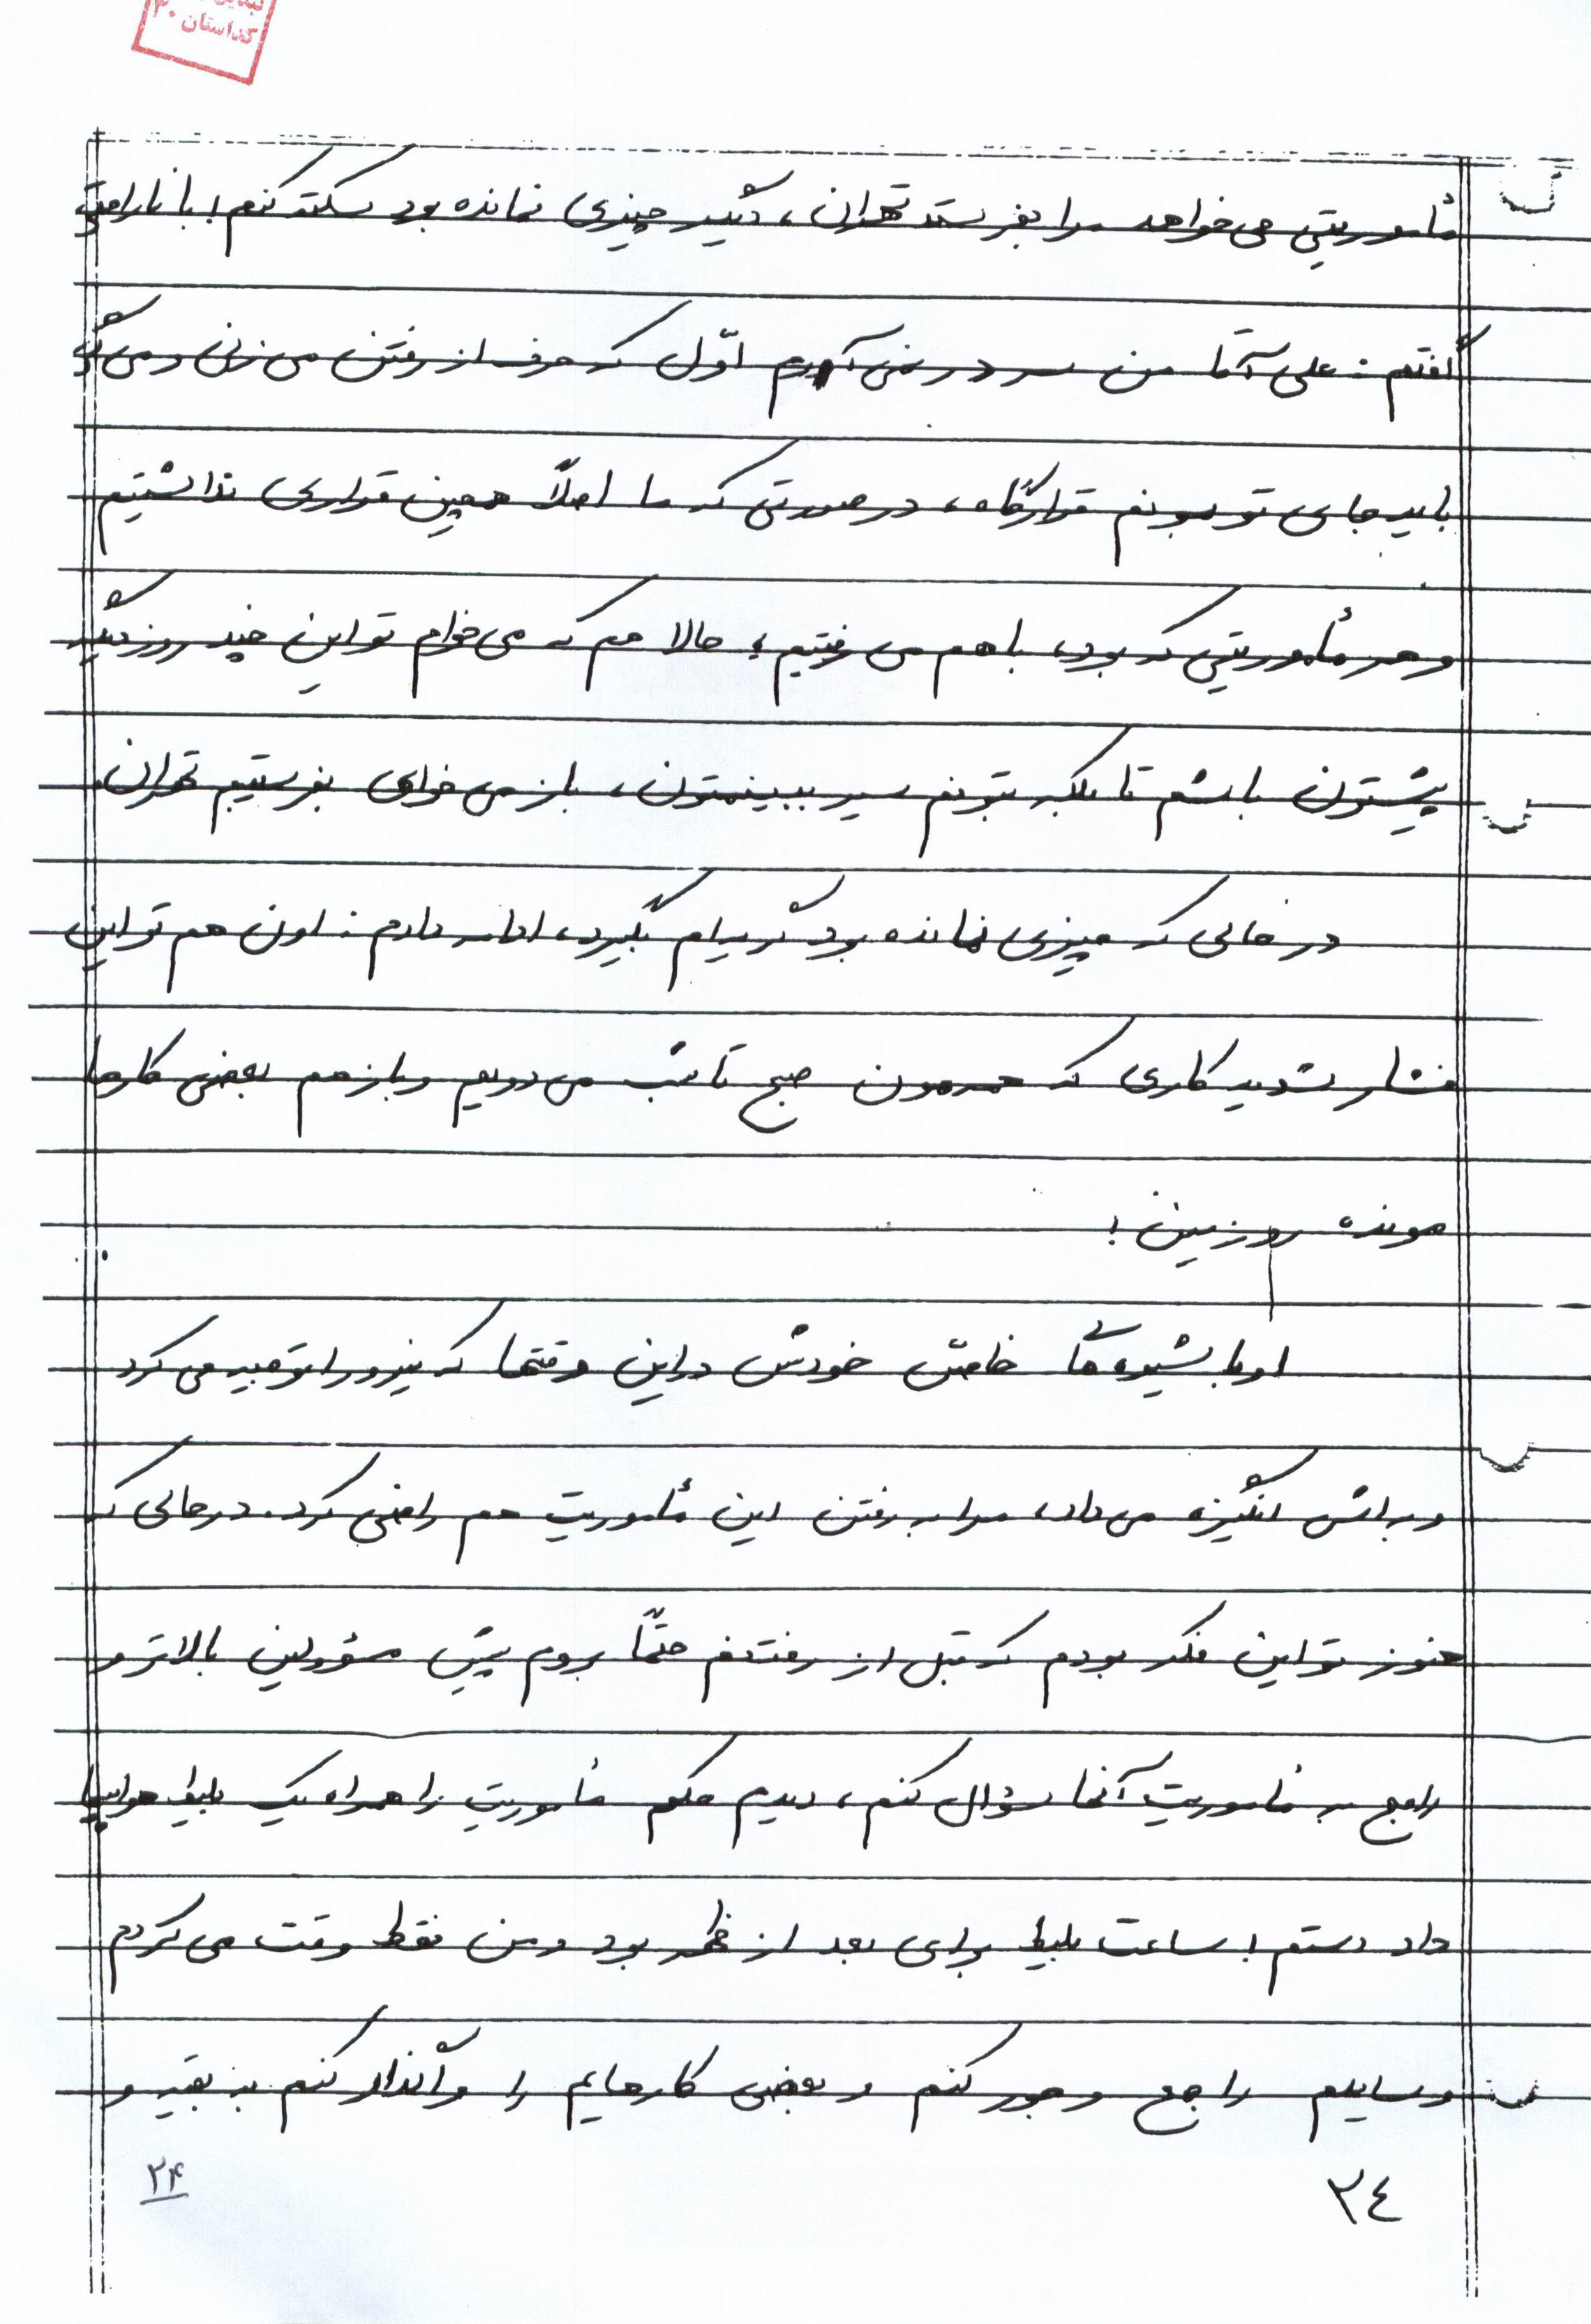 کداستان ۳۰
مأموریتی می‌خواهد مرا بفرستد تهران، دیگر چیزی نمانده بود سکته کنم! با ناراحتی
گفتم: علی آقا من سر در نمی‌آورم اوّل که حرف از رفتن می‌زنی و می‌گی
باید جای تو بمونم قرارگاه، در صورتی که ما اصلاً همچین قراری نداشتیم
و هر مأموریتی که بود، با هم می‌رفتیم؛ حالا هم که می‌خوام تو این چند روز دیگر
پیشتون باشم تا بلکه بتونم سیر ببینمتون، باز می‌خوای بفرستیم تهران.
در حالی که چیزی نمانده بود گریه‌ام بگیرد، ادامه دادم: اون هم تو این
فشار شدید کاری که همه‌مون صبح تا شب می‌دویم و باز هم بعضی کارها
مونده رو زمین!
او با شیوه‌های خاصّ خودش در این وقتها که نیرو را توجیه می‌کرد
و بهش انگیزه می‌داد، مرا به رفتن این مأموریت هم راضی کرد. در حالی که
هنوز تو این فکر بودم که قبل از رفتنم حتماً بروم پیش مسؤولین بالاتر و
راجع به مأموریت آنها سؤال کنم، دیدم حکم مأموریت را همراه یک بلیط هواپیما
داد دستم! ساعت بلیط برای بعد از ظهر بود و من فقط وقت می‌کردم
وسایلم را جمع و جور کنم و بعضی کارهایم را واگذار کنم به بقیه و
۲۴
۲۴